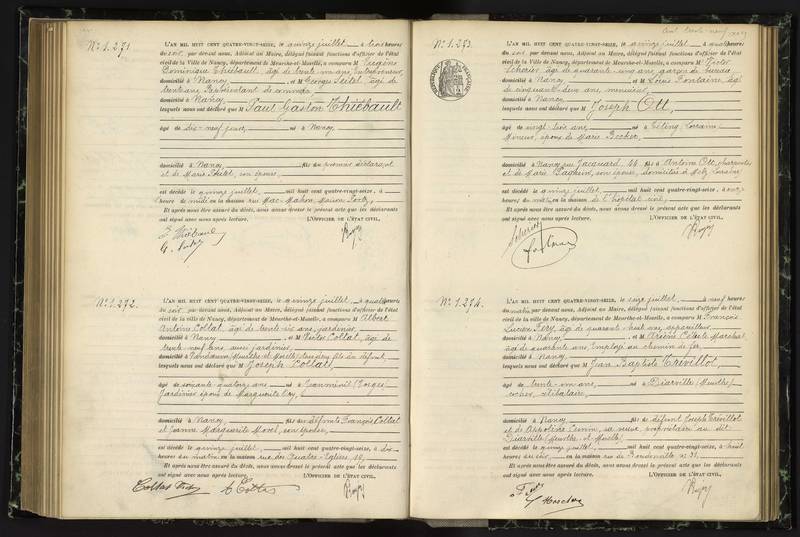 N° 1.271.
L'AN MIL HUIT CENT QUATRE-VINGT-SEIZE, le quinze juillet à trois heures
du soir, par devant nous, Adjoint au Maire, délégué faisant fonctions d'officier de l'état
civil de la Ville de Nancy, département de Meurthe-et-Moselle, a comparu M Eugène
Dominique Thiébault, âgé de trente un ans, Entrepreneur,
domicilié à Nancy et M Georges Seitel âgé de
trente ans Représentant de commerce
domicilié à Nancy,
lesquels nous ont déclaré que M Paul Gaston Thiébault
âgé de dix-neuf jours, né à Nancy
domicilié à Nancy fils du premier déclarant
et de Marie Seitel, son épouse,
est décédé le quinze juillet, mil huit cent quatre-vingt-seize, à
heure de midi en la maison rue Mac-Mahon, Maison
Et après nous être assuré du décès, nous avons dressé le présent acte que les déclarants
ont signé avec nous après lecture. L'OFFICIER DE L'ÉTAT CIVIL,
N° 1.272.
L'AN MIL HUIT CENT QUATRE-VINGT-SEIZE, le quinze juillet à quatre heures
du soir, par devant nous, Adjoint au Maire, délégué faisant fonctions d'officier de l'état
civil de la ville de Nancy, département de Meurthe-et-Moselle, a comparu M Albert
Antoine Collat, âgé de trente six ans, jardinier,
domicilié à Nancy et M Victor Collat, âgé de
trente-neuf ans, aussi jardinier,
domicilié à Vandœuvre (Meurthe et Moselle) tous deux fils du défunt,
lesquels nous ont déclaré que M Joseph Collat,
âgé de soixante quatorze ans né à Jeanménil (Vosges)
Jardinier époux de Marguerite
domicilié à Nancy, fils de défunts François Collat
et Jeanne Marguerite Morel, son épouse,
est décédé le quinze juillet, mil huit cent quatre-vingt-seize, à dix
heures du matin en la maison rue des Quatre-Eglises, 49,
Et après nous être assuré du décès, nous avons dressé le présent acte que les déclarants
ont signé avec nous après lecture. L'OFFICIER DE L'ÉTAT CIVIL,
N° 1.273.
RÉPUBLIQUE FRANÇAISE
L'AN MIL HUIT CENT QUATRE-VINGT-SEIZE, le quinze juillet à quatre heures
du soir, par devant nous, Adjoint au Maire, délégué faisant fonctions d'officier de l'état
civil de la Ville de Nancy, département de Meurthe-et-Moselle, a comparu M Victor
âgé de quarante cinq ans, garçon de bureau,
domicilié à Nancy et M Louis Fontaine, âgé
de cinquante-deux ans, menuisier,
domicilié à Nancy,
lesquels nous ont déclaré que M Joseph Ott,
âgé de vingt-trois ans, né à Téting (Lorraine)
Mineur, époux de Marie Becker,
domicilié à Nancy, rue Jacquard, 44 fils de Antoine Ott, charpentier
et de Marie son épouse, domiciliés à Metz, Lorraine
est décédé le quinze juillet, mil huit cent quatre-vingt-seize, à onze
heures du matin en la maison de l'hôpital civil,
Et après nous être assuré du décès, nous avons dressé le présent acte que les déclarants
ont signé avec nous après lecture. L'OFFICIER DE L'ÉTAT CIVIL,
N° 1.274.
L'AN MIL HUIT CENT QUATRE-VINGT-SEIZE, le seize juillet, à neuf heures
du matin par devant nous, Adjoint au Maire, délégué faisant fonctions d'officier de l'état
civil de la ville de Nancy, département de Meurthe-et-Moselle, a comparu M François
Lucien Fery, âgé de quarante huit ans, appareilleur
domicilié à Nancy, et M Arsène Céleste Marchal,
âgé de quarante ans, Employé au chemin de fer,
domicilié à Nancy,
lesquels nous ont déclaré que M Jean Baptiste Trévillot,
âgé de trente-un ans, né à Diarville (Meurthe)
cocher, célibataire,
domicilié à Nancy fils de défunt Joseph Trévillot
et de Appoline sa veuve, propriétaire au dit
Diarville (Meurthe et Moselle)
est décédé le quinze juillet, mil huit cent quatre-vingt-seize, à huit
heures du soir, en la maison rue de 31,
Et après nous être assuré du décès, nous avons dressé le présent acte que les déclarants
ont signé avec nous après lecture. L'OFFICIER DE L'ÉTAT CIVIL,